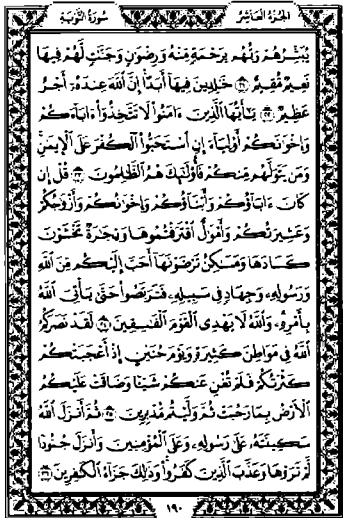 الجزء العاشر سورة التوبة
يُبَشِّرُهُمْ رَبُّهُم بِرَحْمَةٍ مِّنْهُ وَرِضْوَٰنٍ وَجَنَّٰتٍ لَّهُمْ فِيهَا
نَعِيمٌ مُّقِيمٌ ٢١ خَٰلِدِينَ فِيهَآ أَبَدًا إِنَّ ٱللَّهَ عِندَهُۥٓ أَجْرٌ
عَظِيمٌ ٢٢ يَٰٓأَيُّهَا ٱلَّذِينَ ءَامَنُوا۟ لَا تَتَّخِذُوٓا۟ ءَابَآءَكُمْ
وَإِخْوَٰنَكُمْ أَوْلِيَآءَ إِنِ ٱسْتَحَبُّوا۟ ٱلْكُفْرَ عَلَى ٱلْإِيمَٰنِ
وَمَن يَتَوَلَّهُم مِّنكُمْ فَأُو۟لَٰٓئِكَ هُمُ ٱلظَّٰلِمُونَ ٢٣ قُلْ إِن
كَانَ ءَابَآؤُكُمْ وَأَبْنَآؤُكُمْ وَإِخْوَٰنُكُمْ وَأَزْوَٰجُكُمْ
وَعَشِيرَتُكُمْ وَأَمْوَٰلٌ ٱقْتَرَفْتُمُوهَا وَتِجَٰرَةٌ تَخْشَوْنَ
كَسَادَهَا وَمَسَٰكِنُ تَرْضَوْنَهَآ أَحَبَّ إِلَيْكُم مِّنَ ٱللَّهِ
وَرَسُولِهِۦ وَجِهَادٍ فِى سَبِيلِهِۦ فَتَرَبَّصُوا۟ حَتَّىٰ يَأْتِىَ ٱللَّهُ
بِأَمْرِهِۦ وَٱللَّهُ لَا يَهْدِى ٱلْقَوْمَ ٱلْفَٰسِقِينَ ٢٤ لَقَدْ نَصَرَكُمُ
ٱللَّهُ فِى مَوَاطِنَ كَثِيرَةٍ وَيَوْمَ حُنَيْنٍ إِذْ أَعْجَبَتْكُمْ
كَثْرَتُكُمْ فَلَمْ تُغْنِ عَنكُمْ شَيْـًٔا وَضَاقَتْ عَلَيْكُمُ
ٱلْأَرْضُ بِمَا رَحُبَتْ ثُمَّ وَلَّيْتُم مُّدْبِرِينَ ٢٥ ثُمَّ أَنزَلَ ٱللَّهُ
سَكِينَتَهُۥ عَلَىٰ رَسُولِهِۦ وَعَلَى ٱلْمُؤْمِنِينَ وَأَنزَلَ جُنُودًا
لَّمْ تَرَوْهَا وَعَذَّبَ ٱلَّذِينَ كَفَرُوا۟ وَذَٰلِكَ جَزَآءُ ٱلْكَٰفِرِينَ ٢٦
١٩٠